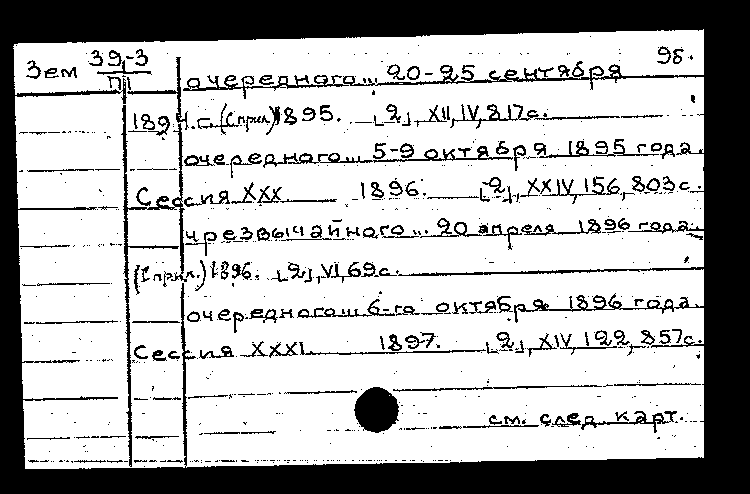 Зем 39-3 98.
П
очередного... 20-25 сентября
1894.г. (С прил.) 1895. [2], XII, IV, 817с.
очередного... 5-9 октября 1895 года.
Сессия XXX 1896. [2], XXIV, 156, 803с.
чрезвычайного... 20 апреля 1896 года.
(С прил.) 1896. [2], VI, 69с.
очередного... 6-го октября 1896 года.
Сессия XXXI. 1897. [2], XIV, 122, 857с.
см. след карт.